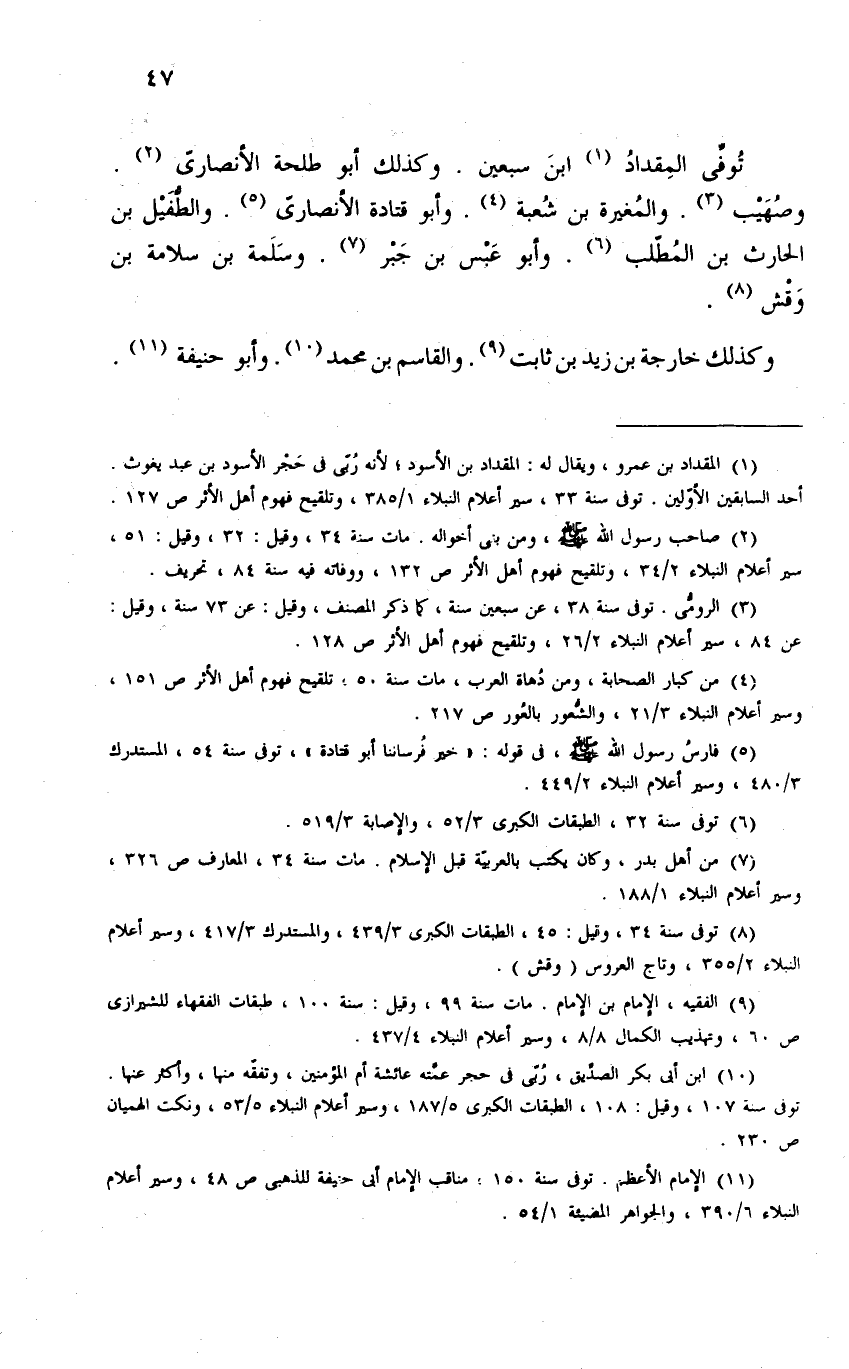 ٤٧
تُوفِّى المِقدادُ (١) ابنَ سبعين . وكذلك أبو طلحة الأنصارىّ (٢) .
وصُهَيْب (٣) . والمُغيرة بن شُعبة (٤) . وأبو قتادة الأنصارىّ (٥) . والطُّفَيْل بن
الحارث بن المُطّلب (٦) . وأبو عَبْس بن جَبْر (٧) . وسَلَمة بن سلامة بن
وَقْش (٨) .
وكذلك خارجة بن زيد بن ثابت (٩) . والقاسم بن محمد (١٠) . وأبو حنيفة (١١) .
(١) المقداد بن عمرو ، ويقال له : المقداد بن الأسود ؛ لأنه رُبّى فى حَجْر الأسود بن عبد يغوث .
أحد السابقين الأوّلين . توفى سنة ٣٣ ، سير أعلام النبلاء ٣٨٥/١ ، وتلقيح فهوم أهل الأثر ص ١٢٧ .
(٢) صاحب رسول الله ﷺ ، ومن بنى أخواله . مات سنة ٣٤ ، وقيل : ٣٢ ، وقيل : ٥١ ،
سير أعلام النبلاء ٣٤/٢ ، وتلقيح فهوم أهل الأثر ص ١٣٢ ، ووفاته فيه سنة ٨٤ ، تحريف .
(٣) الرومُّى . توفى سنة ٣٨ ، عن سبعين سنة ، كما ذكر المصنف ، وقيل : عن ٧٣ سنة ، وقيل :
عن ٨٤ ، سير أعلام النبلاء ٢٦/٢ ، وتلقيح فهوم أهل الأثر ص ١٢٨ .
(٤) من كبار الصحابة ، ومن دُهاة العرب ، مات سنة ٥٠ ؛ تلقيح فهوم أهل الأثر ص ١٥١ ،
وسير أعلام النبلاء ٢١/٣ ، والشُّعور بالعُور ص ٢١٧ .
(٥) فارسُ رسول الله ﷺ ، فى قوله : « خير فُرساننا أبو قتادة » ، توفى سنة ٥٤ ، المستدرك
٤٨٠/٣ ، وسير أعلام النبلاء ٤٤٩/٢ .
(٦) توفى سنة ٣٢ ، الطبقات الكبرى ٥٢/٣ ، والإصابة ٥١٩/٣ .
(٧) من أهل بدر ، وكان يكتب بالعربيّة قبل الإسلام . مات سنة ٣٤ ، المعارف ص ٣٢٦ ،
وسير أعلام النبلاء ١٨٨/١ .
(٨) توفى سنة ٣٤ ، وقيل : ٤٥ ، الطبقات الكبرى ٤٣٩/٣ ، والمستدرك ٤١٧/٣ ، وسير أعلام
النبلاء ٣٥٥/٢ ، وتاج العروس ( وقش ) .
(٩) الفقيه ، الإمام بن الإمام . مات سنة ٩٩ ، وقيل : سنة ١٠٠ ، طبقات الفقهاء للشيرازى
ص ٦٠ ، وتهذيب الكمال ٨/٨ ، وسير أعلام النبلاء ٤٣٧/٤ .
(١٠) ابن أبى بكر الصدِّيق ، رُبّى فى حجر عمّته عائشة أم المؤمنين ، وتفقّه منها ، وأكثر عنها .
توفى سنة ١٠٧ ، وقيل : ١٠٨ ، الطبقات الكبرى ١٨٧/٥ ، وسير أعلام النبلاء ٥٣/٥ ، ونكت الهميان
ص ٢٣٠ .
(١١) الإمام الأعظم . توفى سنة ١٥٠ ؛ مناقب الإمام أبى حنيفة للذهبى ص ٤٨ ، وسير أعلام
النبلاء ٣٩٠/٦ ، والجواهر المضيئة ٥٤/١ .